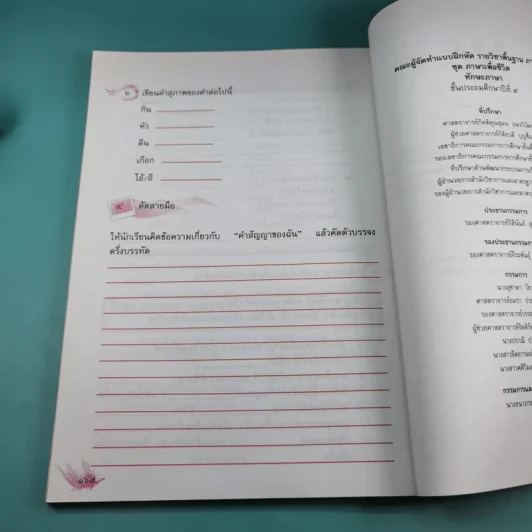 ๖ เขียนคำสุภาพของคำต่อไปนี้
กิน
หัว
ตีน
เกือก
ไอ้/อี
๙ คัดลายมือ
ให้นักเรียนคิดข้อความเกี่ยวกับ "คำสัญญาของฉัน" แล้วคัดตัวบรรจง
ครึ่งบรรทัด
คณะผู้จัดทำแบบฝึกหัด รายวิชาพื้นฐาน
ชุด ภาษาเพื่อชีวิต
ทักษะภาษา
ชั้นประถมศึกษาปีที่ ๔
ที่ปรึกษา
ศาสตราจารย์กิตติคุณสุมน
ผู้ช่วยศาสตราจารย์
เลขาธิการคณะกรรมการการศึกษาขั้นพื้น
รองเลขาธิการคณะกรรมการการศึกษา
ที่ปรึกษาด้านพัฒนากระบวนการ
ผู้อำนวยการสำนักวิชาการและมาตรฐาน
รองผู้อำนวยการสำนักวิชาการและมาตร
ประธานกรรมการ
รองศาสตราจารย์
รองประธานกรรมการ
รองศาสตราจารย์
กรรมการ
นางสุชาดา
ศาสตราจารย์
รองศาสตราจารย์
ผู้ช่วยศาสตราจารย์
นางปราณี
กรรมการและ